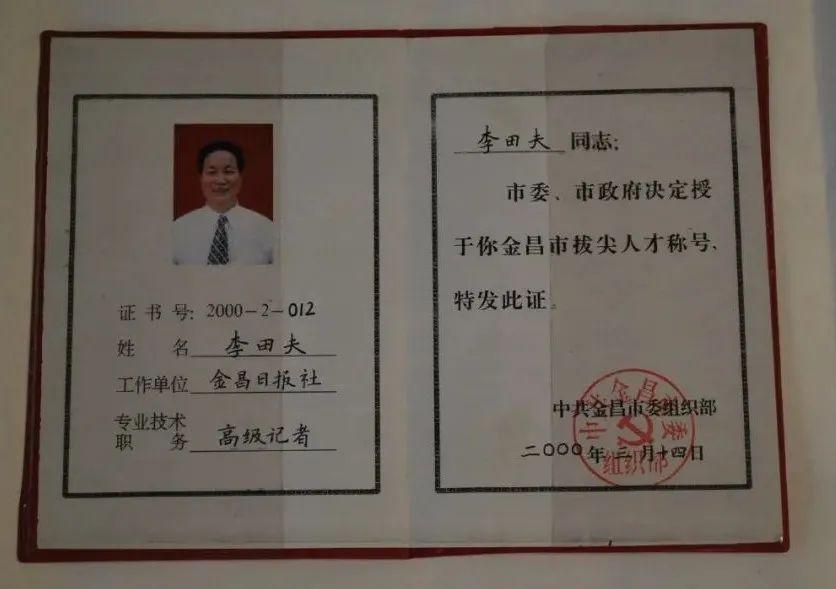 证书号：2000-2-012
姓名 李田夫
工作单位 金昌日报社
专业技术
职务 高级记者
李田夫 同志：
市委、市政府决定授
于你金昌市拔尖人才称号、
特发此证
中共金昌市委组织部
二000年三月十四日
中共金昌市委
组织部